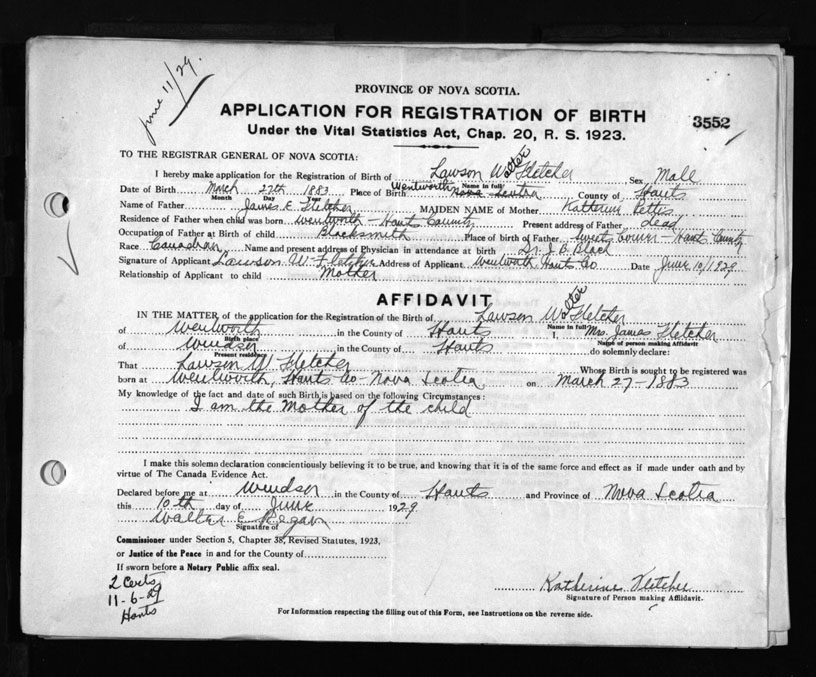 June 11/29.
PROVINCE OF NOVA SCOTIA.
APPLICATION FOR REGISTRATION OF BIRTH
3552
Under the Vital Statistics Act, Chap. 20, R. S. 1923.
TO THE REGISTRAR GENERAL OF NOVA SCOTIA:
I hereby make application for the Registration of Birth of Lawson Walter Fletcher Sex Male
Name in full
Date of Birth March 27th 1883 Place of Birth Wentworth Nova Scotia County of Hants
Month Day Year
Name of Father James E Fletcher MAIDEN NAME of Mother Katherine Pettis
Residence of Father when child was born Wentworth - Hants County Present address of Father dead
Occupation of Father at Birth of child Blacksmith Place of birth of Father Sweets Corner - Hants County
Race Canadian Name and present address of Physician in attendance at birth Dr. J. B. Black
Signature of Applicant Lawson W. Fletcher Address of Applicant Wentworth Hants Co Date June 10/1929
Relationship of Applicant to child Mother
AFFIDAVIT
IN THE MATTER of the application for the Registration of the Birth of Lawson Walter Fletcher
Name in full
of Wentworth in the County of Hants I, Mrs. James Fletcher
Birth place Name of person making Affidavit
of Windsor in the County of Hants do solemnly declare:
Present residence
That Lawson W Fletcher Whose Birth is sought to be registered was
born at Wentworth, Hants Co - Nova Scotia on March 27 - 1883
My knowledge of the fact and date of such Birth is based on the following Circumstances:
I am the Mother of the child
I make this solemn declaration conscientiously believing it to be true, and knowing that it is of the same force and effect as if made under oath and by
virtue of The Canada Evidence Act.
Declared before me at Windsor in the County of Hants and Province of Nova Scotia
this 10th day of June 1929
Walter E Regan
Signature of
Commissioner under Section 5, Chapter 38, Revised Statutes, 1923,
or Justice of the Peace in and for the County of
If sworn before a Notary Public affix seal.
2 Certs
11-6-29
Hants
Katherine Fletcher
Signature of Person making Affidavit.
For Information respecting the filling out of this Form, see Instructions on the reverse side.